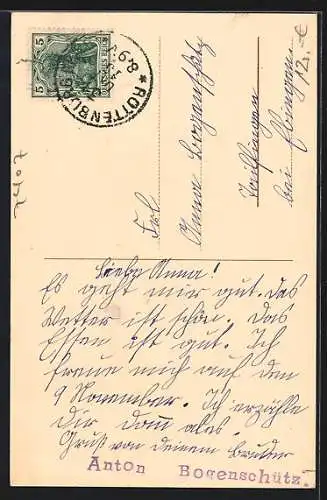 5 5
* ROTTENBURG
Frl
Anna Bogenschütz
Truchtelfingen
bei Ebingen
12.-€
Liebe Anna!
Es geht mir gut. Das
Wetter ist schön. Das
Essen ist gut. Ich
freue mich auf den
9 November. Ich erzähle
Dir dann ales.
Gruß von deinem Bruder
Anton Bogenschütz.